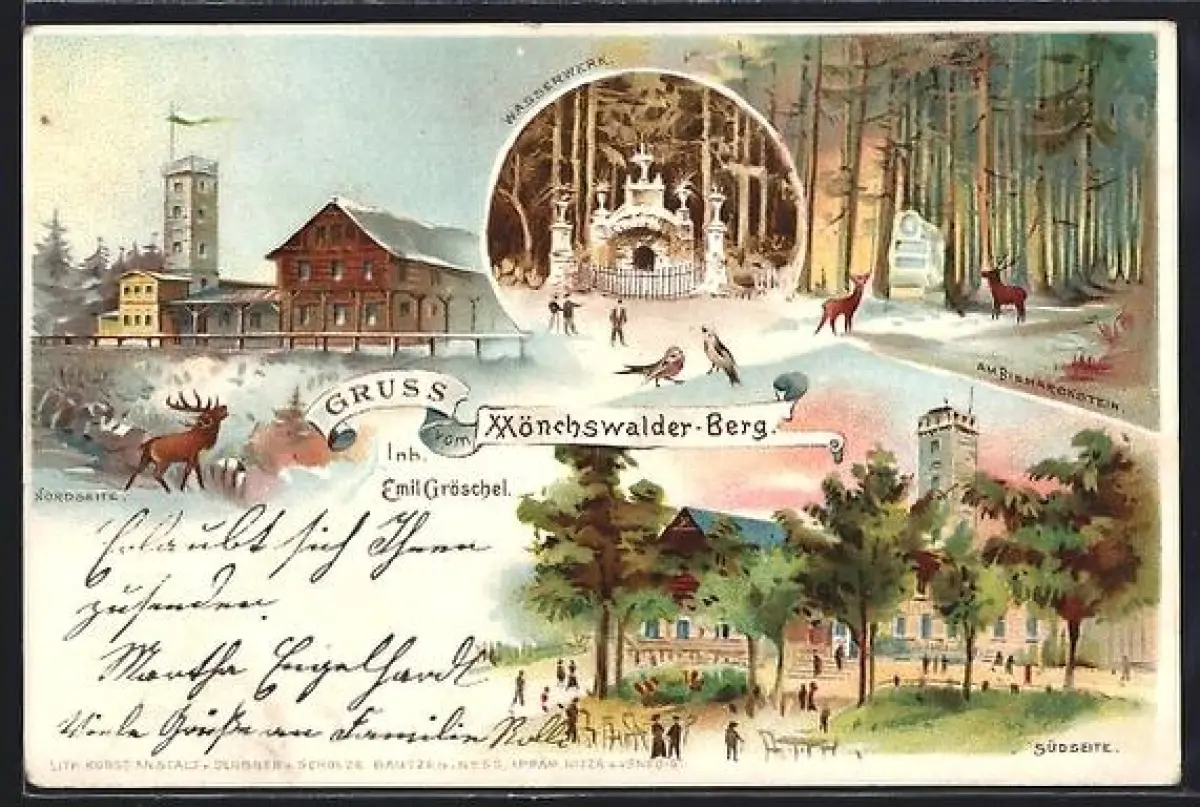 WASSERWERK.
AM BISMARCKSTEIN.
GRUSS
vom Mönchswalder-Berg.
Inh.
Emil Gröschel.
NORDSEITE.
Erlaubt sich Ihnen
zusenden
Martha Engelhardt
Viele Grüße an Familie
SÜDSEITE.
LITH. KUNST-ANSTALT SCHOLZE BAUTZEN